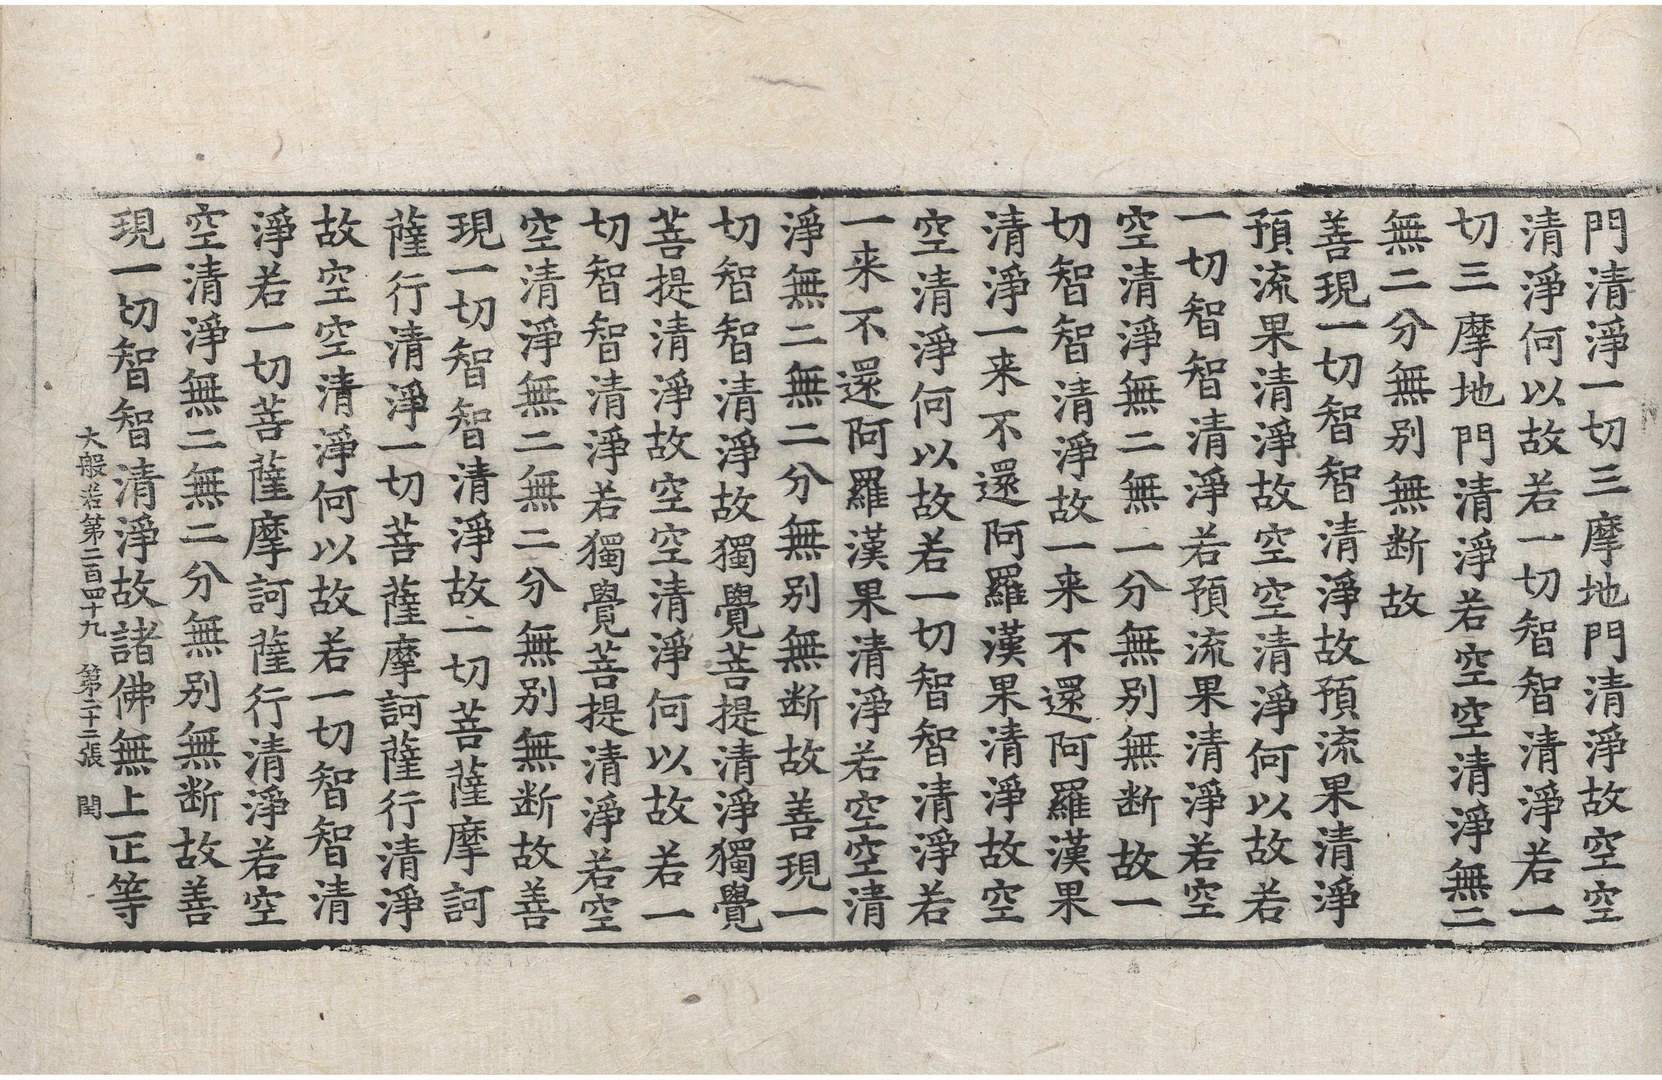 門清淨一切三摩地門清淨故空空
清淨何以故若一切智智清淨若一
切三摩地門清淨若空空清淨無二
無二分無別無断故
善現一切智智清淨故預流果清淨
預流果清淨故空空清淨何以故若
一切智智清淨若預流果清淨若空
空清淨無二無一分無別無断故一
切智智清淨故一来不還阿羅漢果
清淨一来不還阿羅漢果清淨故空
空清淨何以故若一切智智清淨若
一来不還阿羅漢果清淨若空空清
淨無二無二分無別無断故善現一
切智智清淨故獨覺菩提清淨獨覺
菩提清淨故空空清淨何以故若一
切智智清淨若獨覺菩提清淨若空
空清淨無二無二分無別無断故善
現一切智智清淨故一切菩薩摩訶
薩行清淨一切菩薩摩訶薩行清淨
故空空清淨何以故若一切智智清
淨若一切菩薩摩訶薩行清淨若空
空清淨無二無二分無別無断故善
現一切智智清淨故諸佛無上正等
大般若第二百四十九 第二十二張 閏